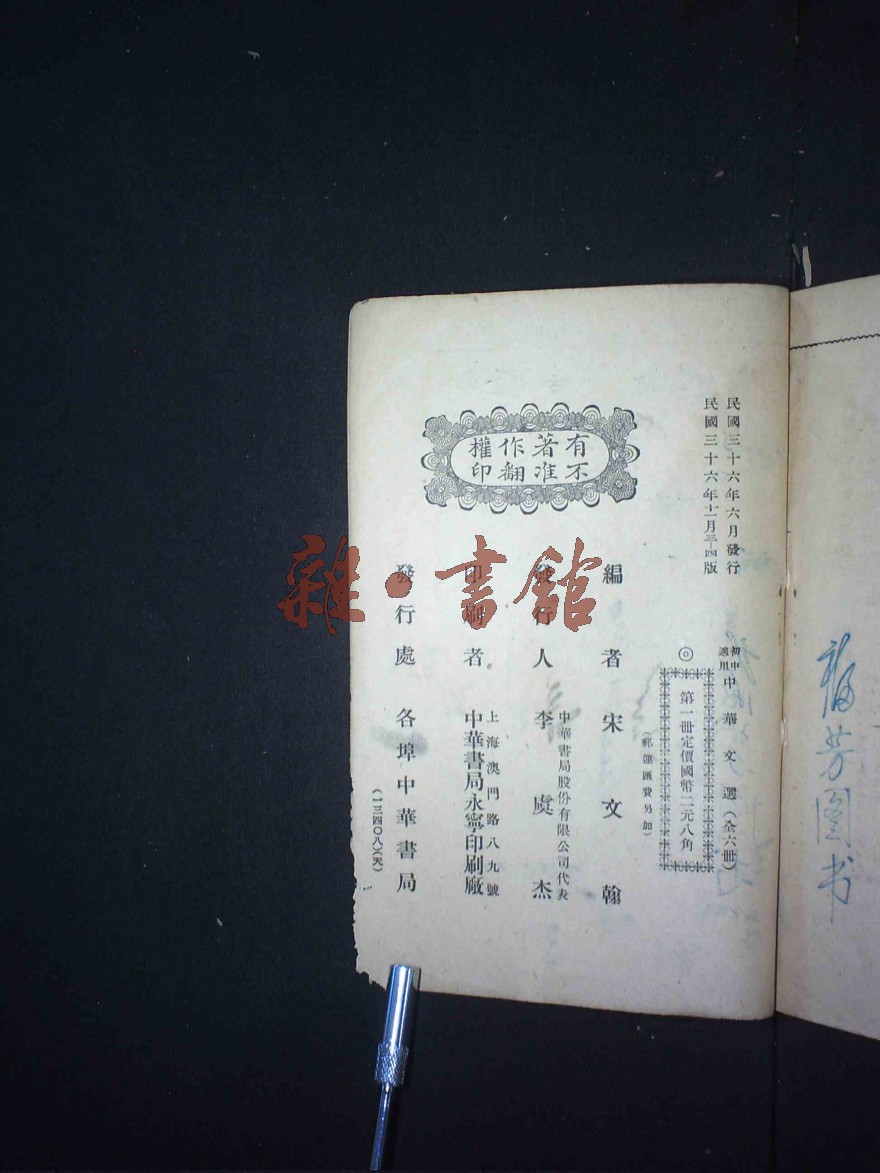 民國三十六年六月發行
民國三十六年十一月三—四版
初中適用中華文選(全六冊)
◎第一冊定價國幣二元八角
(郵運匯費另加)
編者 宋文翰
發行人 李虞杰
中華書局股份有限公司代表
印刷者 中華書局永寧印刷廠
上海澳門路八九號
發行處 各埠中華書局
(一三四〇八)(天)
有著作權
不准翻印
雜·書館
图书